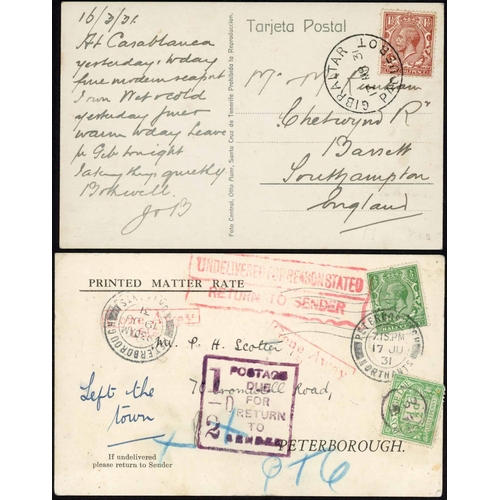 16/3/31.
Tarjeta Postal
At Casablanca
yesterday, today
fine modern seaport
Town Wet & cold
yesterday finer
warm today Leave
Gib tonight
taking things quietly
Both well.
Jo B
Foto Central, Otto Auer, Santa Cruz de Tenerife Prohibida la Reproducción.
GIBRALTAR
31
PAQUEBOT
Chetwynd Rd
Bassett
Southampton
England
PRINTED MATTER RATE
UNDELIVERED FOR REASON STATED
RETURN TO SENDER
Gone Away
PETERBOROUGH
PETERBOROUGH
7.15 PM
17 JU
31
NORTHANTS
Mr. P. H. Scotter
70 Cromwell Road,
PETERBOROUGH.
1
D
2
POSTAGE
DUE
FOR
RETURN
TO
SENDER
Left the
town
If undelivered
please return to Sender